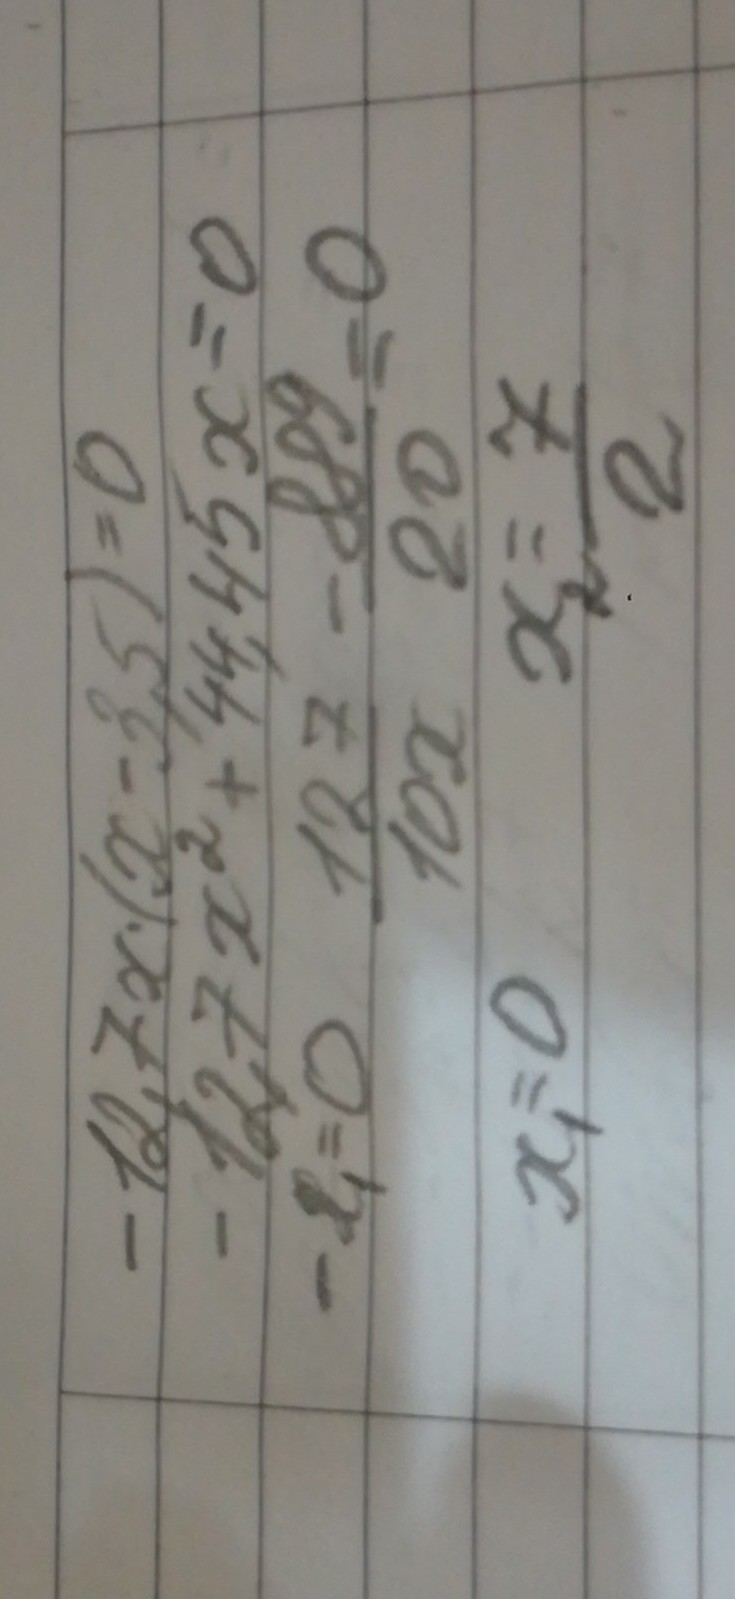 -12,7x·(x-3,5)=0
-12,7x²+44,45x=0
-x₁=0 127/10x - 889/20 =0
x₁=0 x₂=7/2